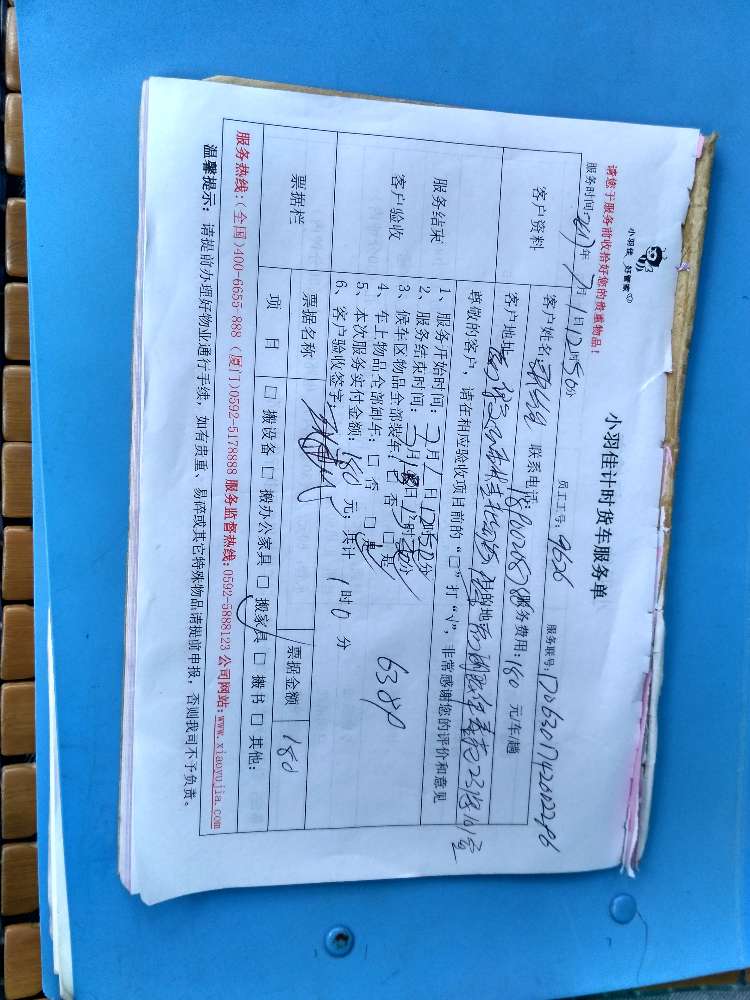 小羽佳 好管家
请您于服务前收拾好您的贵重物品！
小羽佳计时货车服务单
服务时间: 2017年7月1日12时50分 员工工号: 9626 服务联号:
客户资料
客户姓名: 联系电话: 服务费用: 180 元/车/趟
客户地址: 目的地:
服务结束
客户验收
尊敬的客户，请在相应验收项目前的“□”打“√”，非常感谢您的评价和意见
1、服务开始时间: 7月1日12时50分
2、服务结束时间: 7月1日13时50分
3、候车区物品全部装车: □ 否 □ 是
4、车上物品全部卸车: □ 否 □ 是
5、本次服务实付金额: 180 元; 共计 1时0分
6、客户验收签字:
6388P
票据栏
票据名称 票据金额 180
项 目 □ 搬设备 □ 搬办公家具 □ 搬家具 □ 搬书 □ 其他:
服务热线:(全国)400-6655-888 (厦门)0592-5178888 服务监督热线:0592-5888123 公司网站:www.xiaoyujia.com
温馨提示: 请提前办理好物业通行手续，如有贵重、易碎或其它特殊物品请提前申报，否则我司不予负责。